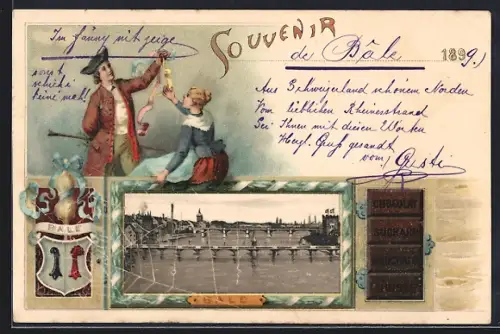 SOUVENIR
de Bâle 1899.)
Im Fanny nit zeige
sonst
schick i
keine mehr!
Aus Schweizerland schönem Norden
Vom lieblichen Rheinesstrand
Sei Ihnen mit diesen Worten
Herzl. Gruß gesandt
vom Gusti
BALE
CHOCOLAT
SUCHARD
BALE